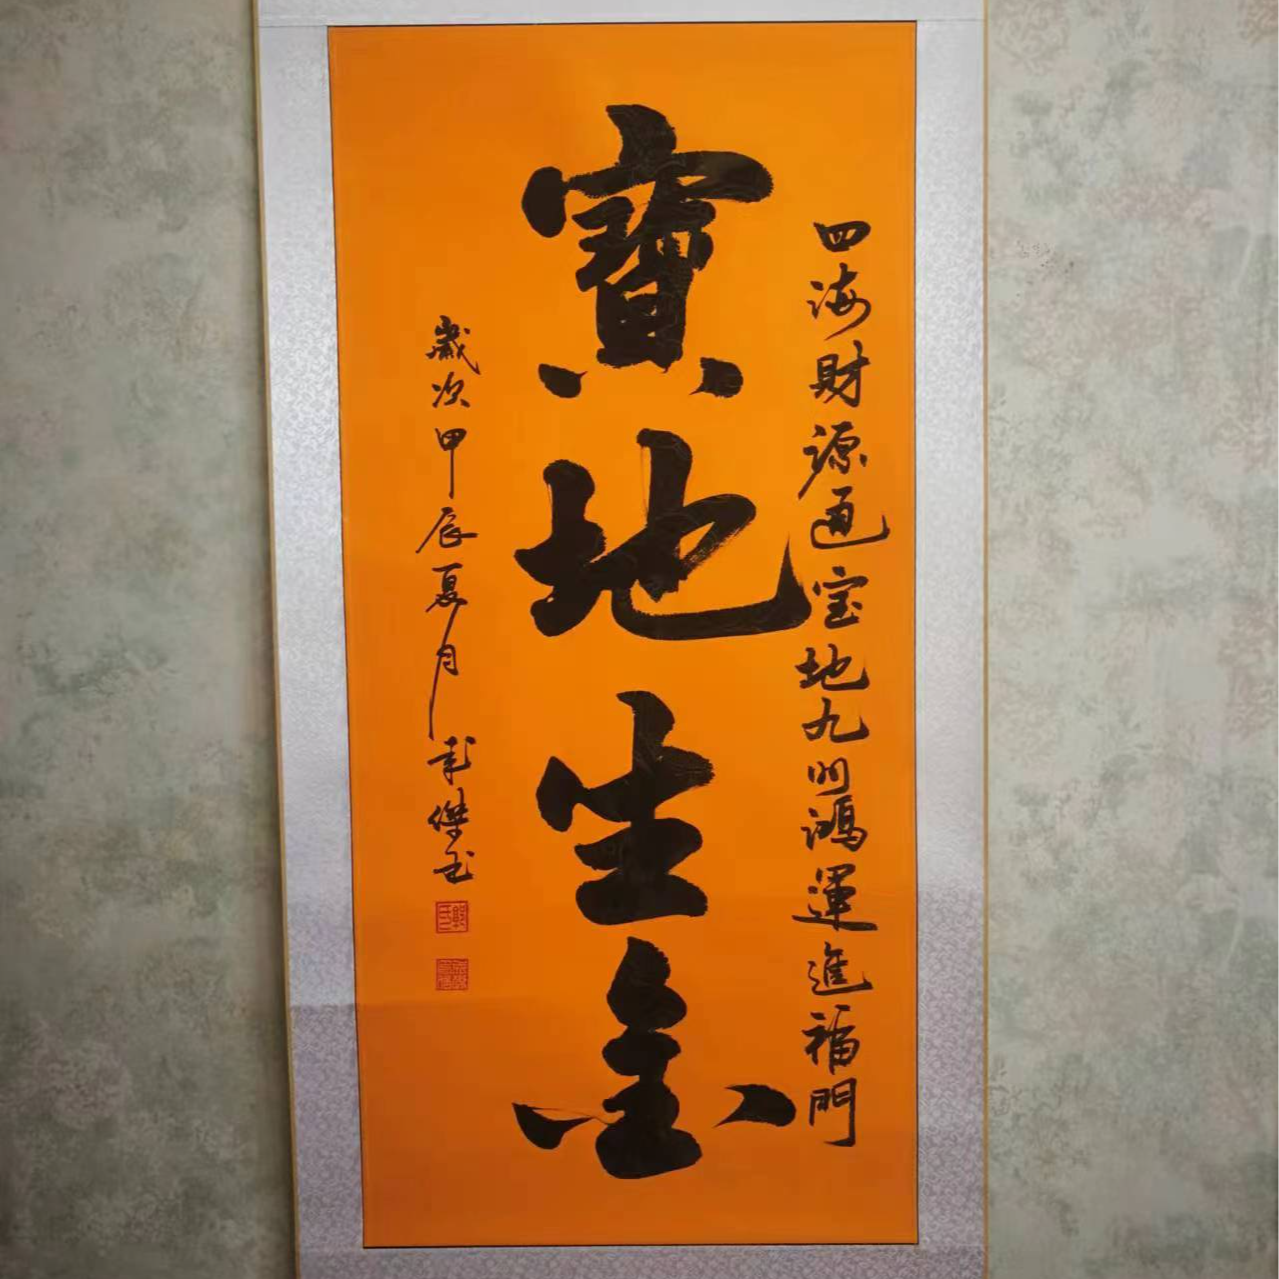 四海財源通宝地九州鴻運進福門
寶地生金
歲次甲辰夏月傑书